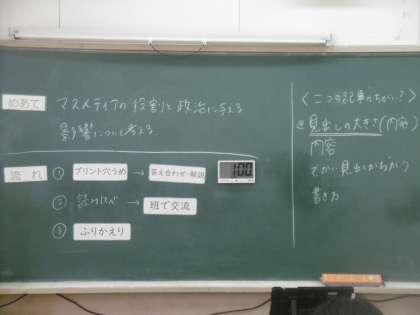 めあて マスメディアの役割と政治に与える
影響について考える
流れ ① プリント穴うめ → 答え合わせ・解説 100
② 読みくらべ → 班で交流
③ ふりかえり
〈二つの記事のちがい?〉
見出しの大きさ(内容)
内容
でかい見出しかちがう
書き方